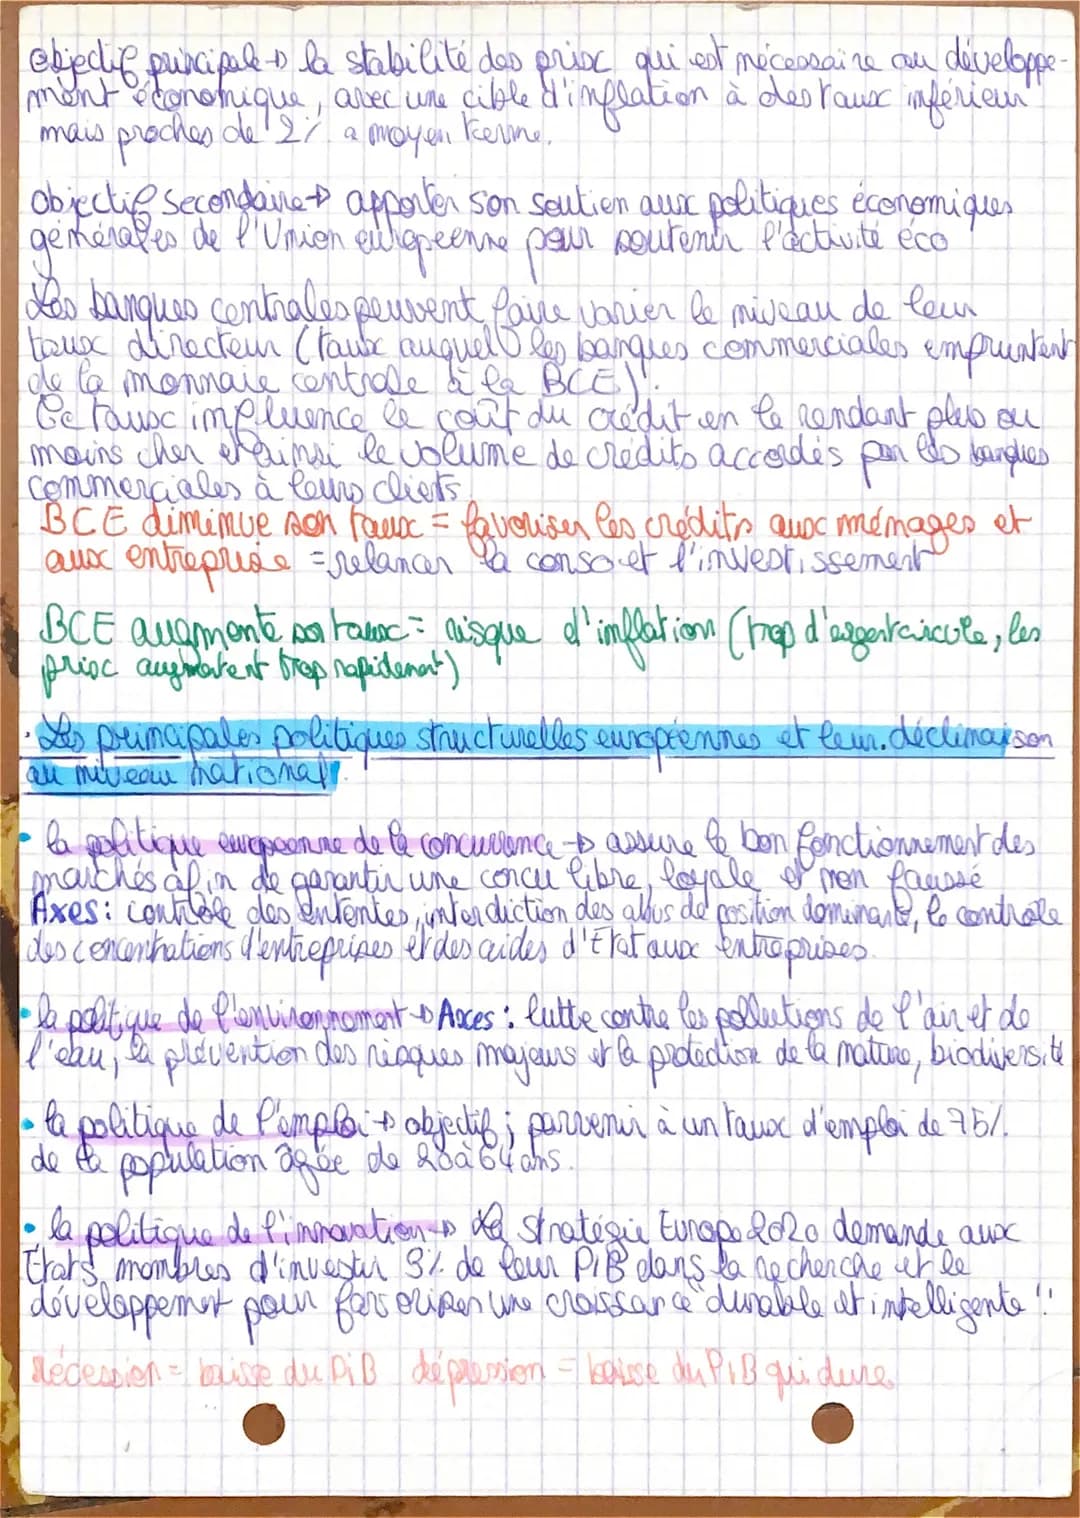 Objectif principale → la stabilité des prix qui est nécessaire au développe-
ment économique, avec une cible d'inflation à des taux inférieur
mais proches de 2% a moyen terme.
Objectif Secondaire → apporter son soutien aux politiques économiques
générales de l'Union européenne pour soutenir l'activité éco
Les banques centrales peuvent faire varier le niveau de leur
taux directeur (taux auquel les banques commerciales empruntent
de la monnaie centrale à la BCE).
Ce taux influence le coût du crédit en le rendant plus ou
moins cher et ainsi le volume de crédits accordés par les banques
commerciales à leurs clients.
BCE diminue son taux = favoriser les crédits aux ménages et
aux entreprise = relancer la conso et l'investissement
BCE augmente son taux = risque d'inflation (trop d'argent circule, les
prix augmentent trop rapidement)
· Les principales politiques structurelles européennes et leur déclinaison
au niveau national.
• la politique européenne de la concurrence → assure le bon fonctionnement des
marchés afin de garantir une concu libre, loyale et non faussé
Axes : contrôle des ententes, interdiction des abus de position dominante, le contrôle
des concentrations d'entreprises et des aides d'Etat aux entreprises.
• la politique de l'environnement → Axes : lutte contre les pollutions de l'air et de
l'eau, la prévention des risques majeurs et la protection de la nature, biodiversité
• la politique de l'emploi → objectif ; parvenir à un taux d'emploi de 75%
de la population âgée de 20 à 64 ans.
• la politique de l'innovation → La stratégie Europe 2020 demande aux
Etats membres d'investir 3% de leur PIB dans la recherche et le
développement pour favoriser une croissance "durable et intelligente".
récession = baisse du PIB dépression = baisse du PIB qui dure